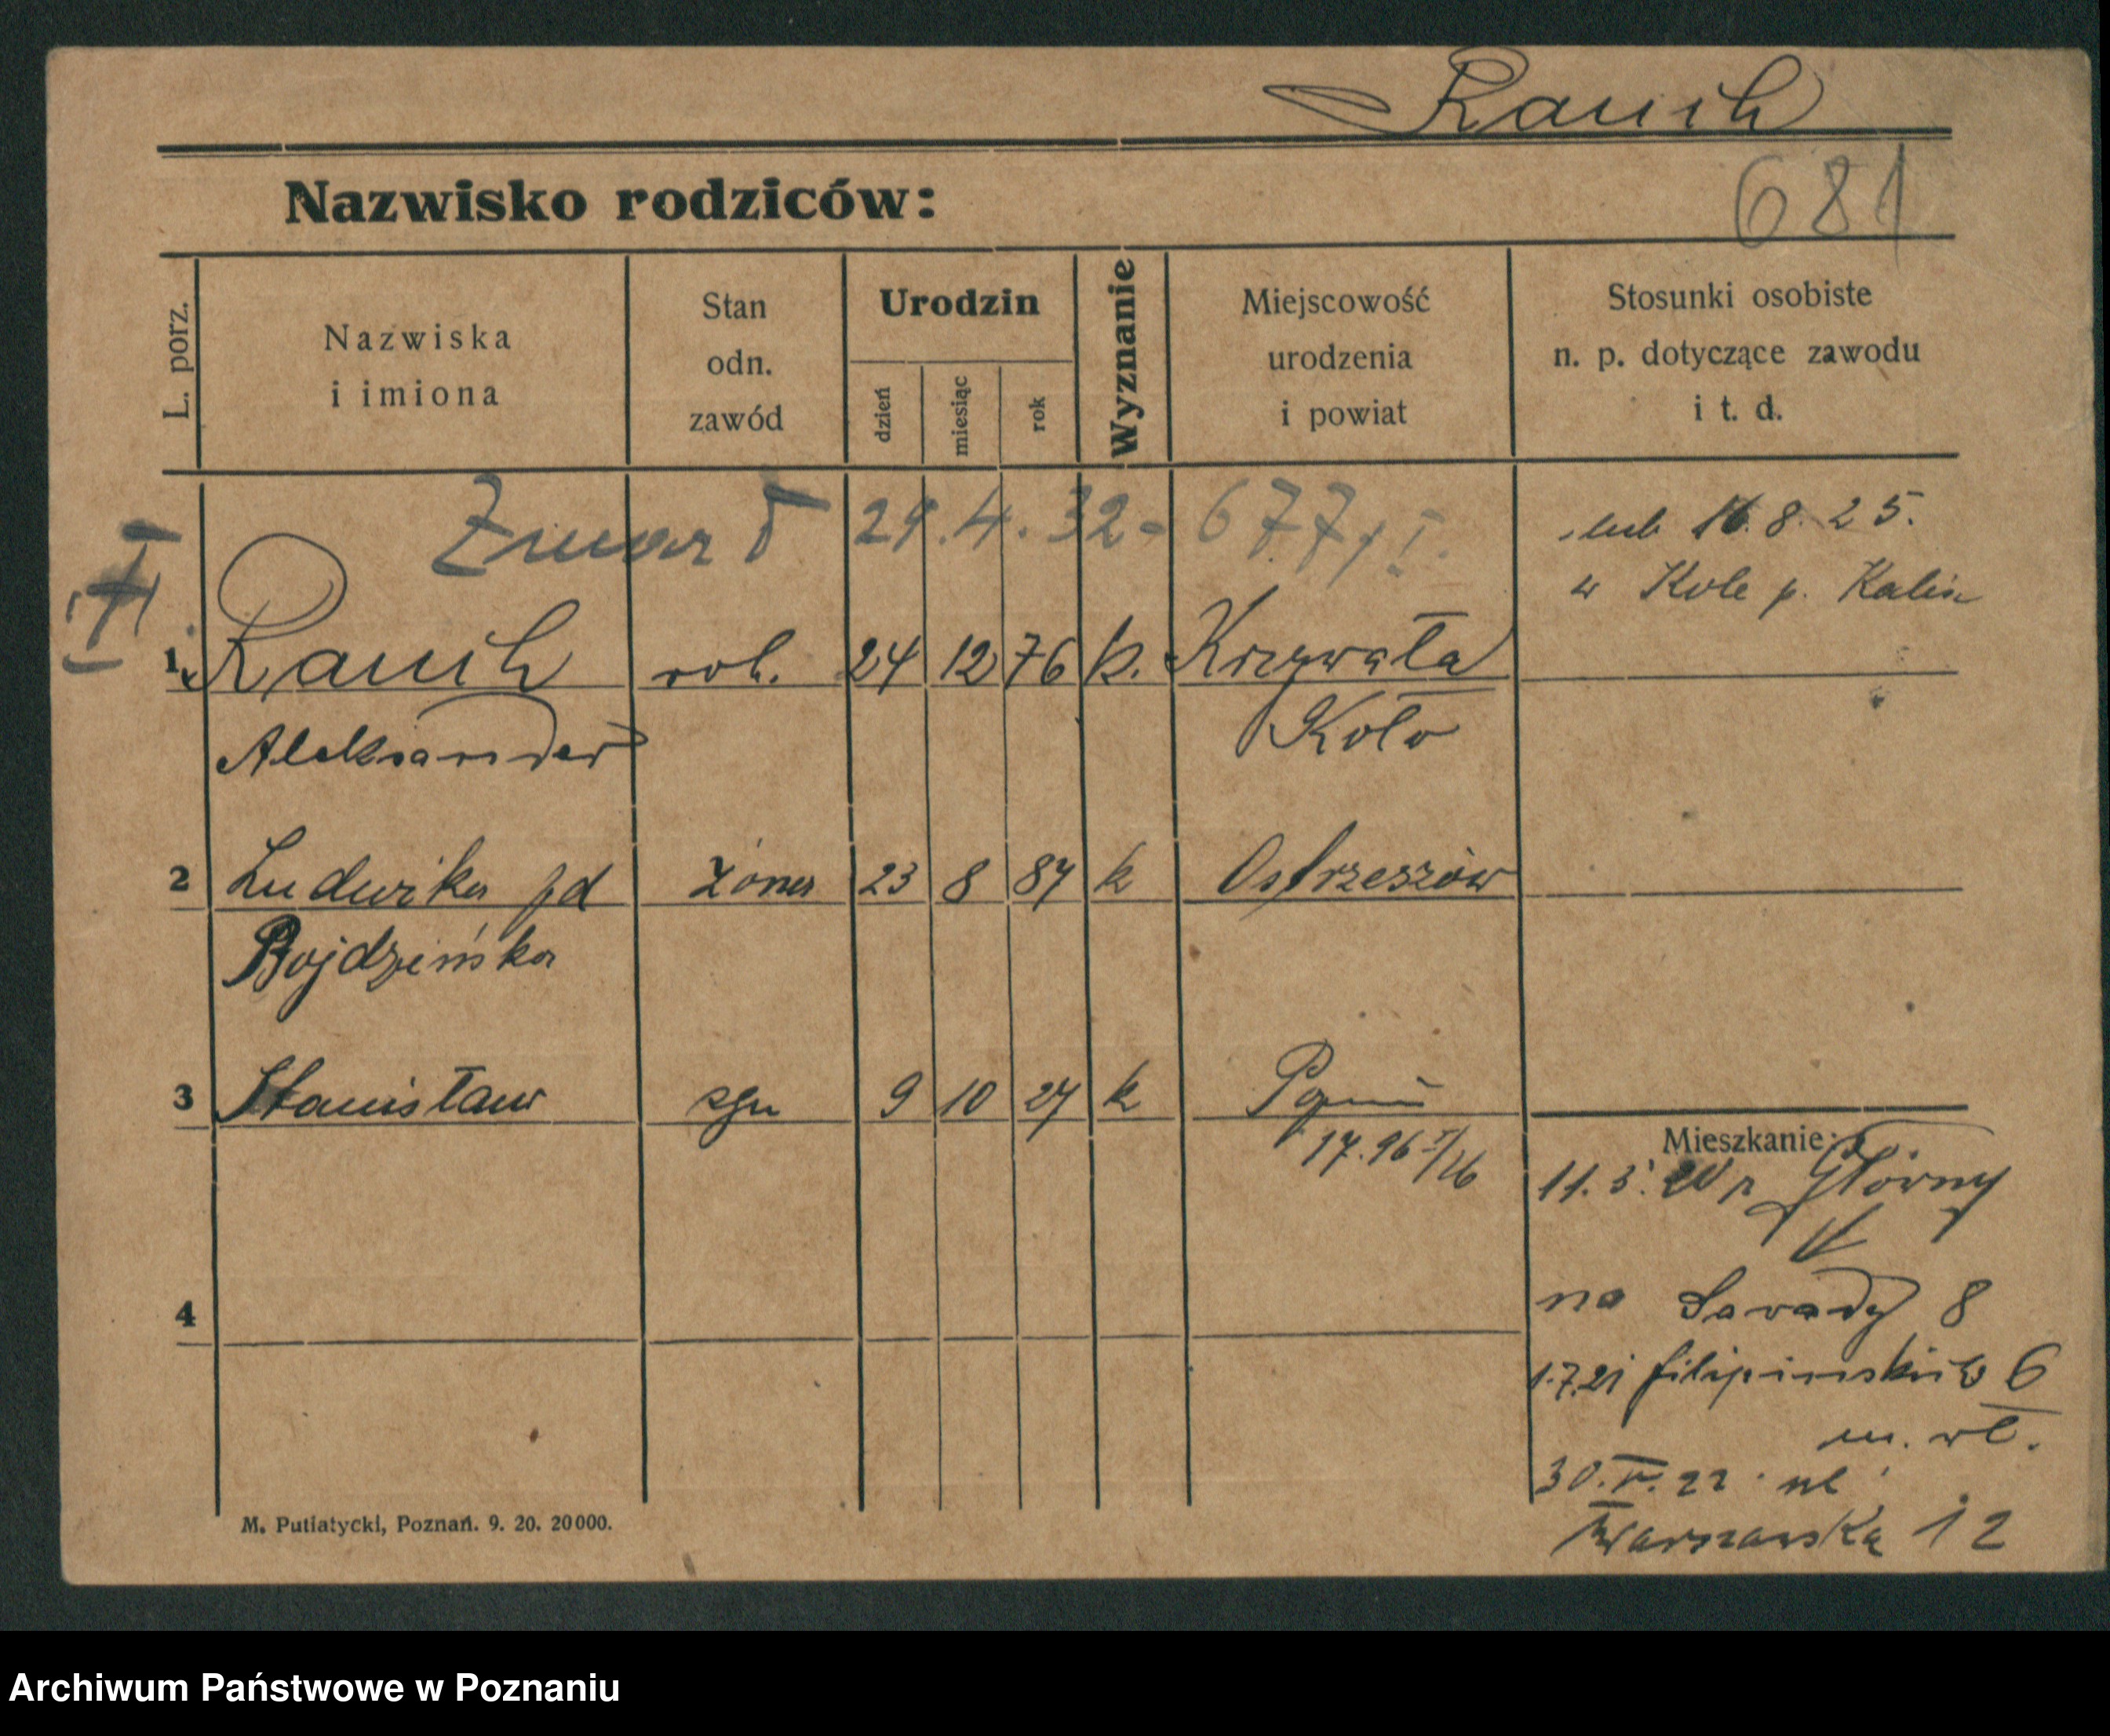 Rauch
681
Nazwisko rodziców:
L. porz.
Nazwiska
i imiona
Stan
odn.
zawód
Urodzin
dzień
miesiąc
rok
Wyznanie
Miejscowość
urodzenia
i powiat
Stosunki osobiste
n. p. dotyczące zawodu
i t. d.
Zmarł 29.4.32 - 677/I.
ślub 16.8.25.
w Kole p. Kalisz
1 Rauch rob. 24 12 76 k. Krzywała
Koło
Aleksander
2 Ludwika żona 23 8 87 k Ostrzeszów
Bojdzińska
3 Stanisław syn 9 10 27 k Pozn
Mieszkanie:
11. 5. Główny
na 8
4
1.7.21 6
m. wł.
30. V. 22 ul
Warszawska 12
M. Putiatycki, Poznań. 9. 20. 20000.
Archiwum Państwowe w Poznaniu